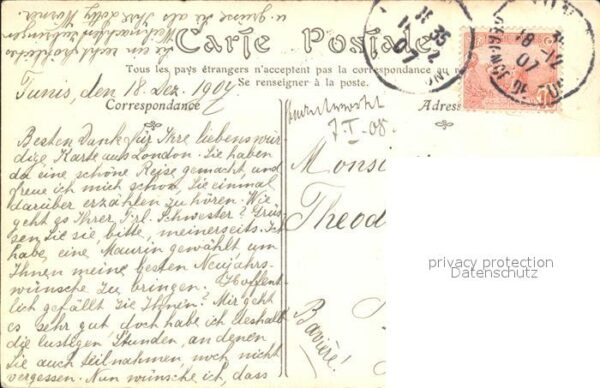 Carte Postale
Tous les pays étrangers n'acceptent pas la correspondance au
Se renseigner à la poste.
Correspondance
Adres
Tunis, den 18. Dez. 1907
Besten Dank für Ihre liebenswür
dige Karte aus London. Sie haben
da eine schöne Reise gemacht, und
freue ich mich schon, Sie einmal
darüber erzählen zu hören. Wie
geht es Ihrer Frl. Schwester? Grüs
sen Sie sie, bitte, meinerseits. Ich
habe eine Maurin gewählt um
Ihnen meine besten Neujahrs-
wünsche zu bringen. Hoffent-
lich gefällt sie Ihnen? Mir geht
es sehr gut doch habe ich deshalb
die lustigen Stunden, an denen
Sie auch teilnahmen noch nicht
vergessen. Nun wünsche ich, dass
Sie ein recht
Weihnachten zubringen
u. grüsse Sie als Ihre
7-I-08.
Monsi
Theod
Bavière!
07
07
privacy protection
Datenschutz